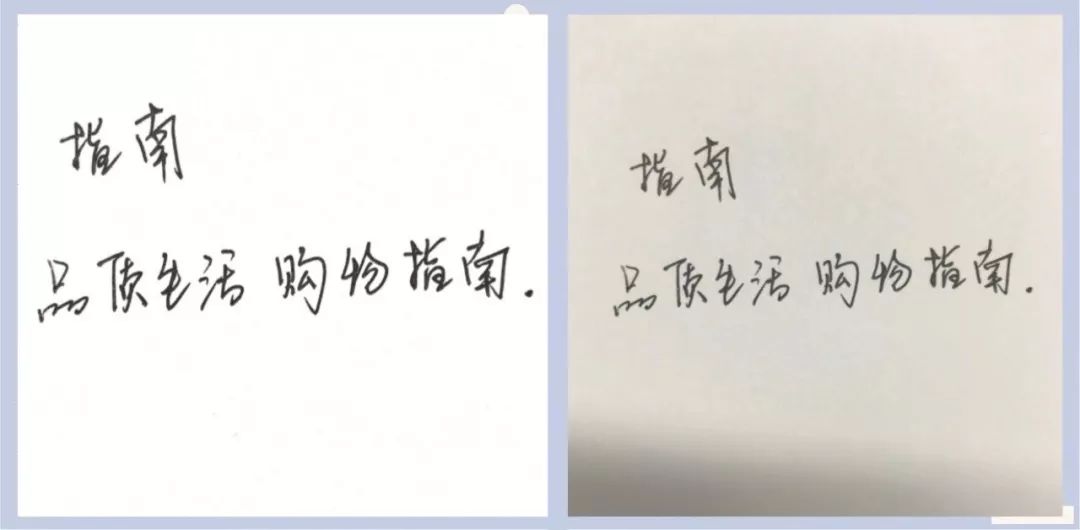 指南
品质生活 购物指南.
指南
品质生活 购物指南.